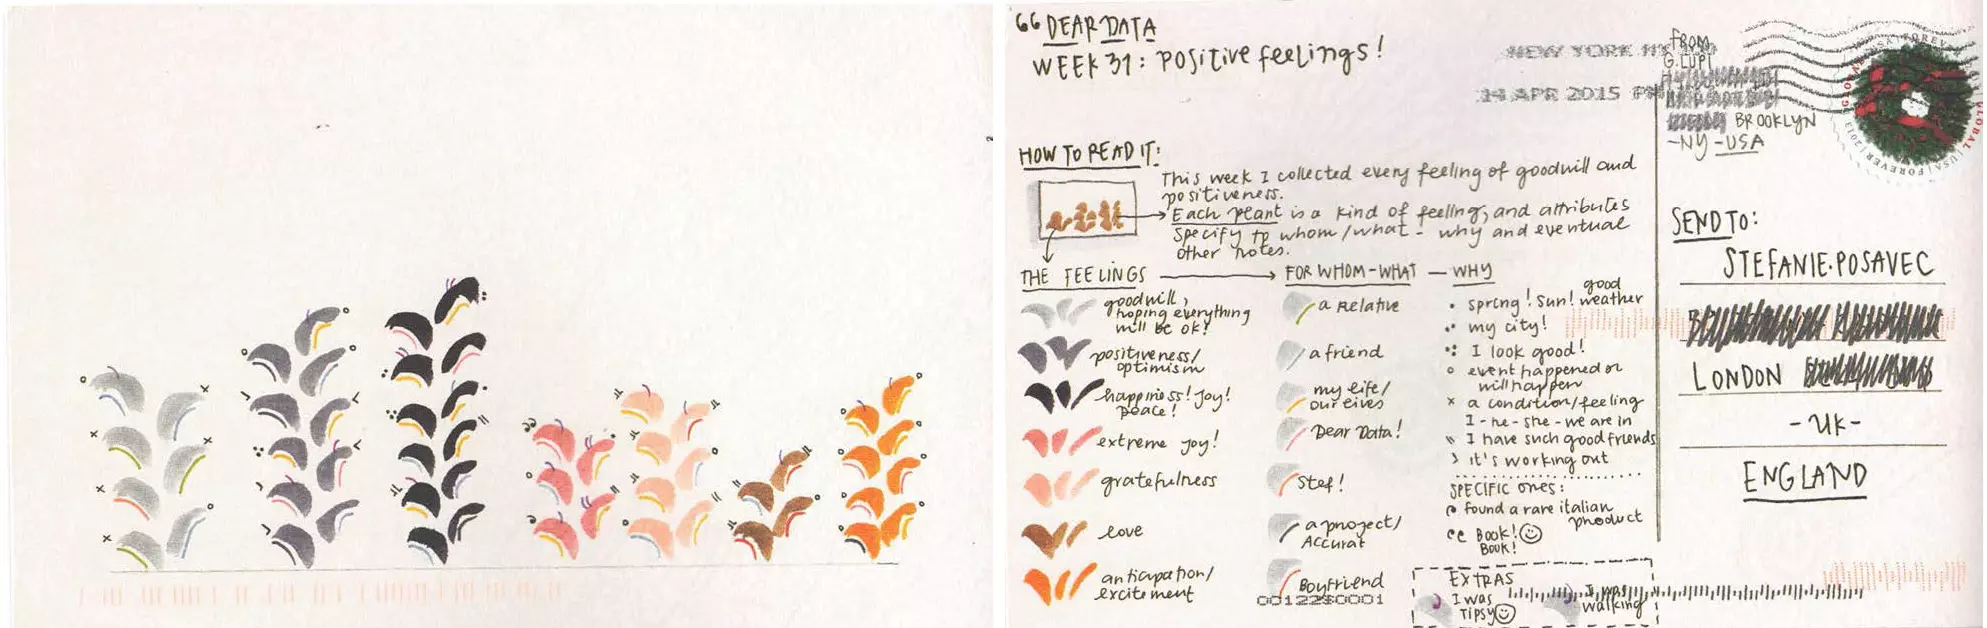 66 DEAR DATA
WEEK 31: positive feelings!
NEW YORK NY
14 APR 2015 PM
FROM
G. LUPI
BROOKLYN
-NY-USA
HOW TO READ IT:
This week I collected every feeling of goodwill and
positiveness.
Each plant is a kind of feeling, and attributes
specify to whom/what - why and eventual
other notes.
THE FEELINGS
goodwill,
hoping everything
will be ok!
positiveness/
optimism
happiness! Joy!
peace!
extreme joy!
gratefulness
love
anticipation/
excitement
FOR WHOM-WHAT
a Relative
a friend
my life/
our lives
Dear Data!
Stef!
a project/
Accurat
Boyfriend
0012280001
WHY
spring! Sun! good weather
my city!
I look good!
event happened or
will happen
a condition/feeling
I - he - she - we are in
I have such good friends
it's working out
SPECIFIC ONES:
found a rare italian
product
BOOK!
BOOK!
EXTRAS
I was
TIPSY
I was
walking
SEND TO:
STEFANIE·POSAVEC
LONDON
-UK-
ENGLAND